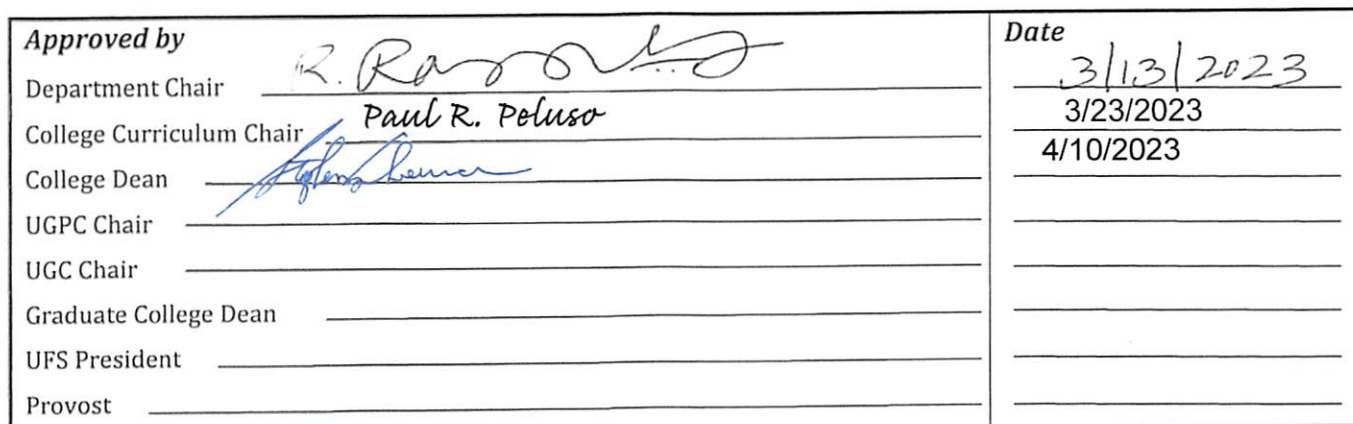 Approved by Date
Department Chair R. 3/13/2023
College Curriculum Chair Paul R. Peluso 3/23/2023
College Dean 4/10/2023
UGPC Chair
UGC Chair
Graduate College Dean
UFS President
Provost